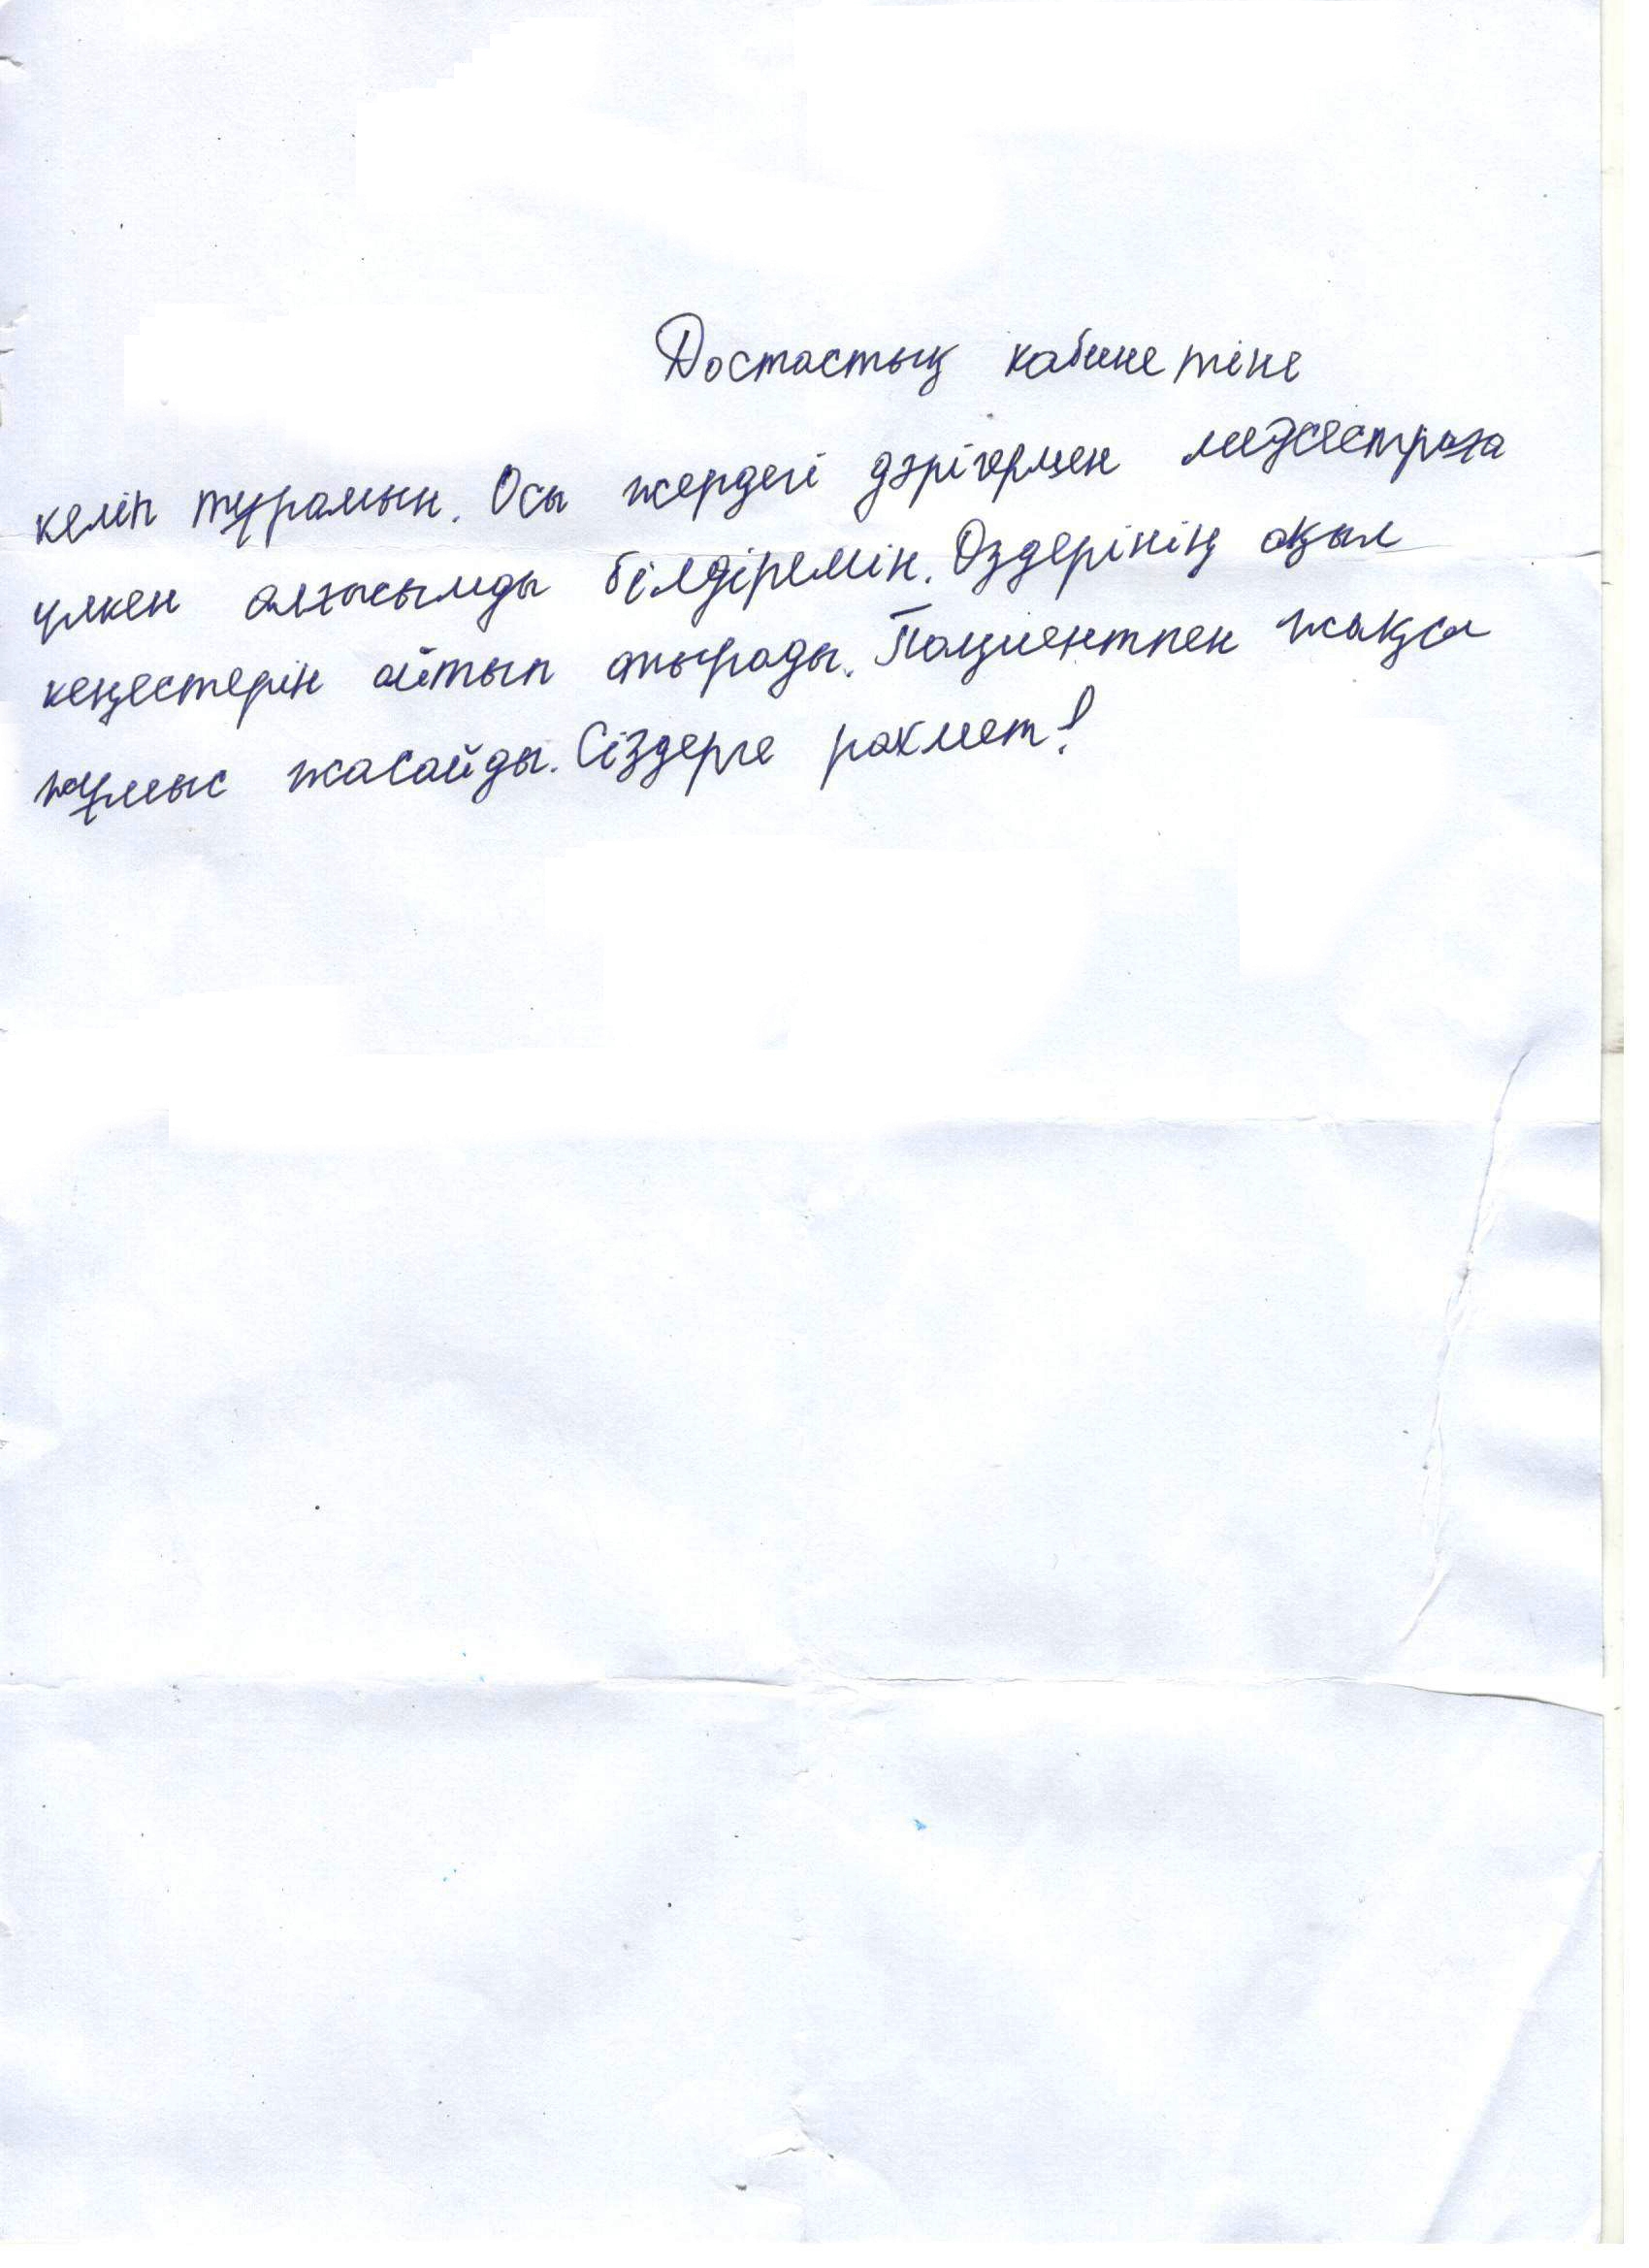 Достастық кабинетіне
келіп тұрамын. Осы жердегі дәрігермен медсестраға
үлкен алғысымды білдіремін. Өздерінің ақыл
кеңестерін айтып отырады. Пациентпен жақсы
жұмыс жасайды. Сіздерге рахмет!